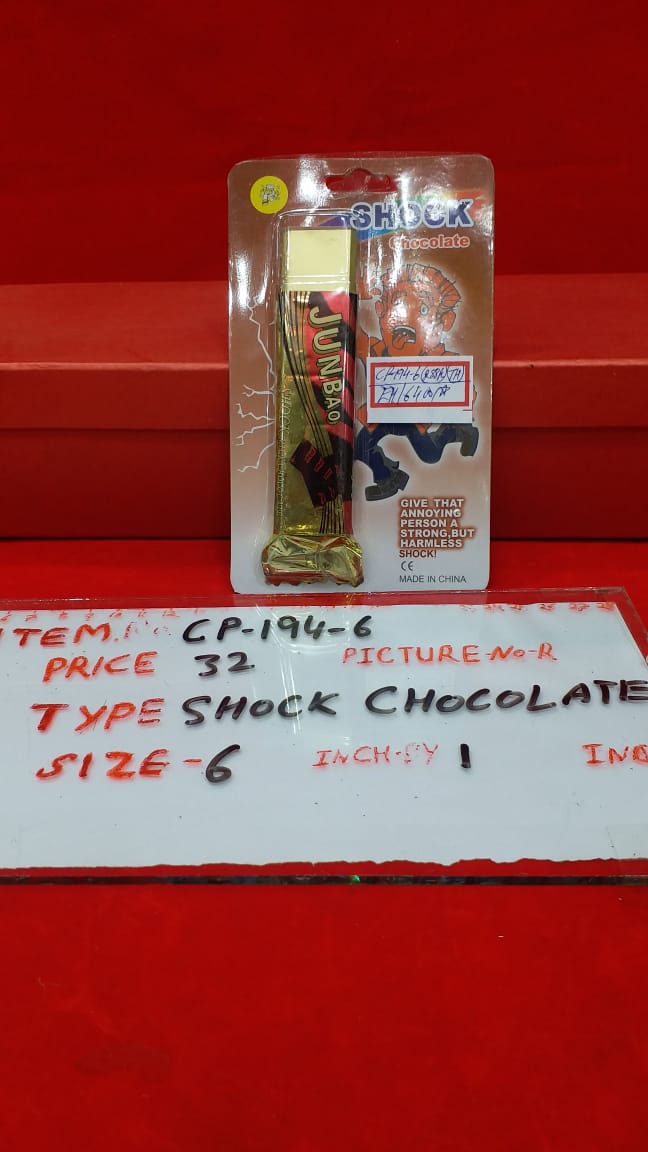 SHOCK
Chocolate
JUNBAO
CP-194-6
GIVE THAT
ANNOYING
PERSON A
STRONG,BUT
HARMLESS
SHOCK!
CE
MADE IN CHINA
ITEM. CP-194-6
PRICE 32 PICTURE-No-R
TYPE SHOCK CHOCOLATE
SIZE-6 INCH-BY 1 INC